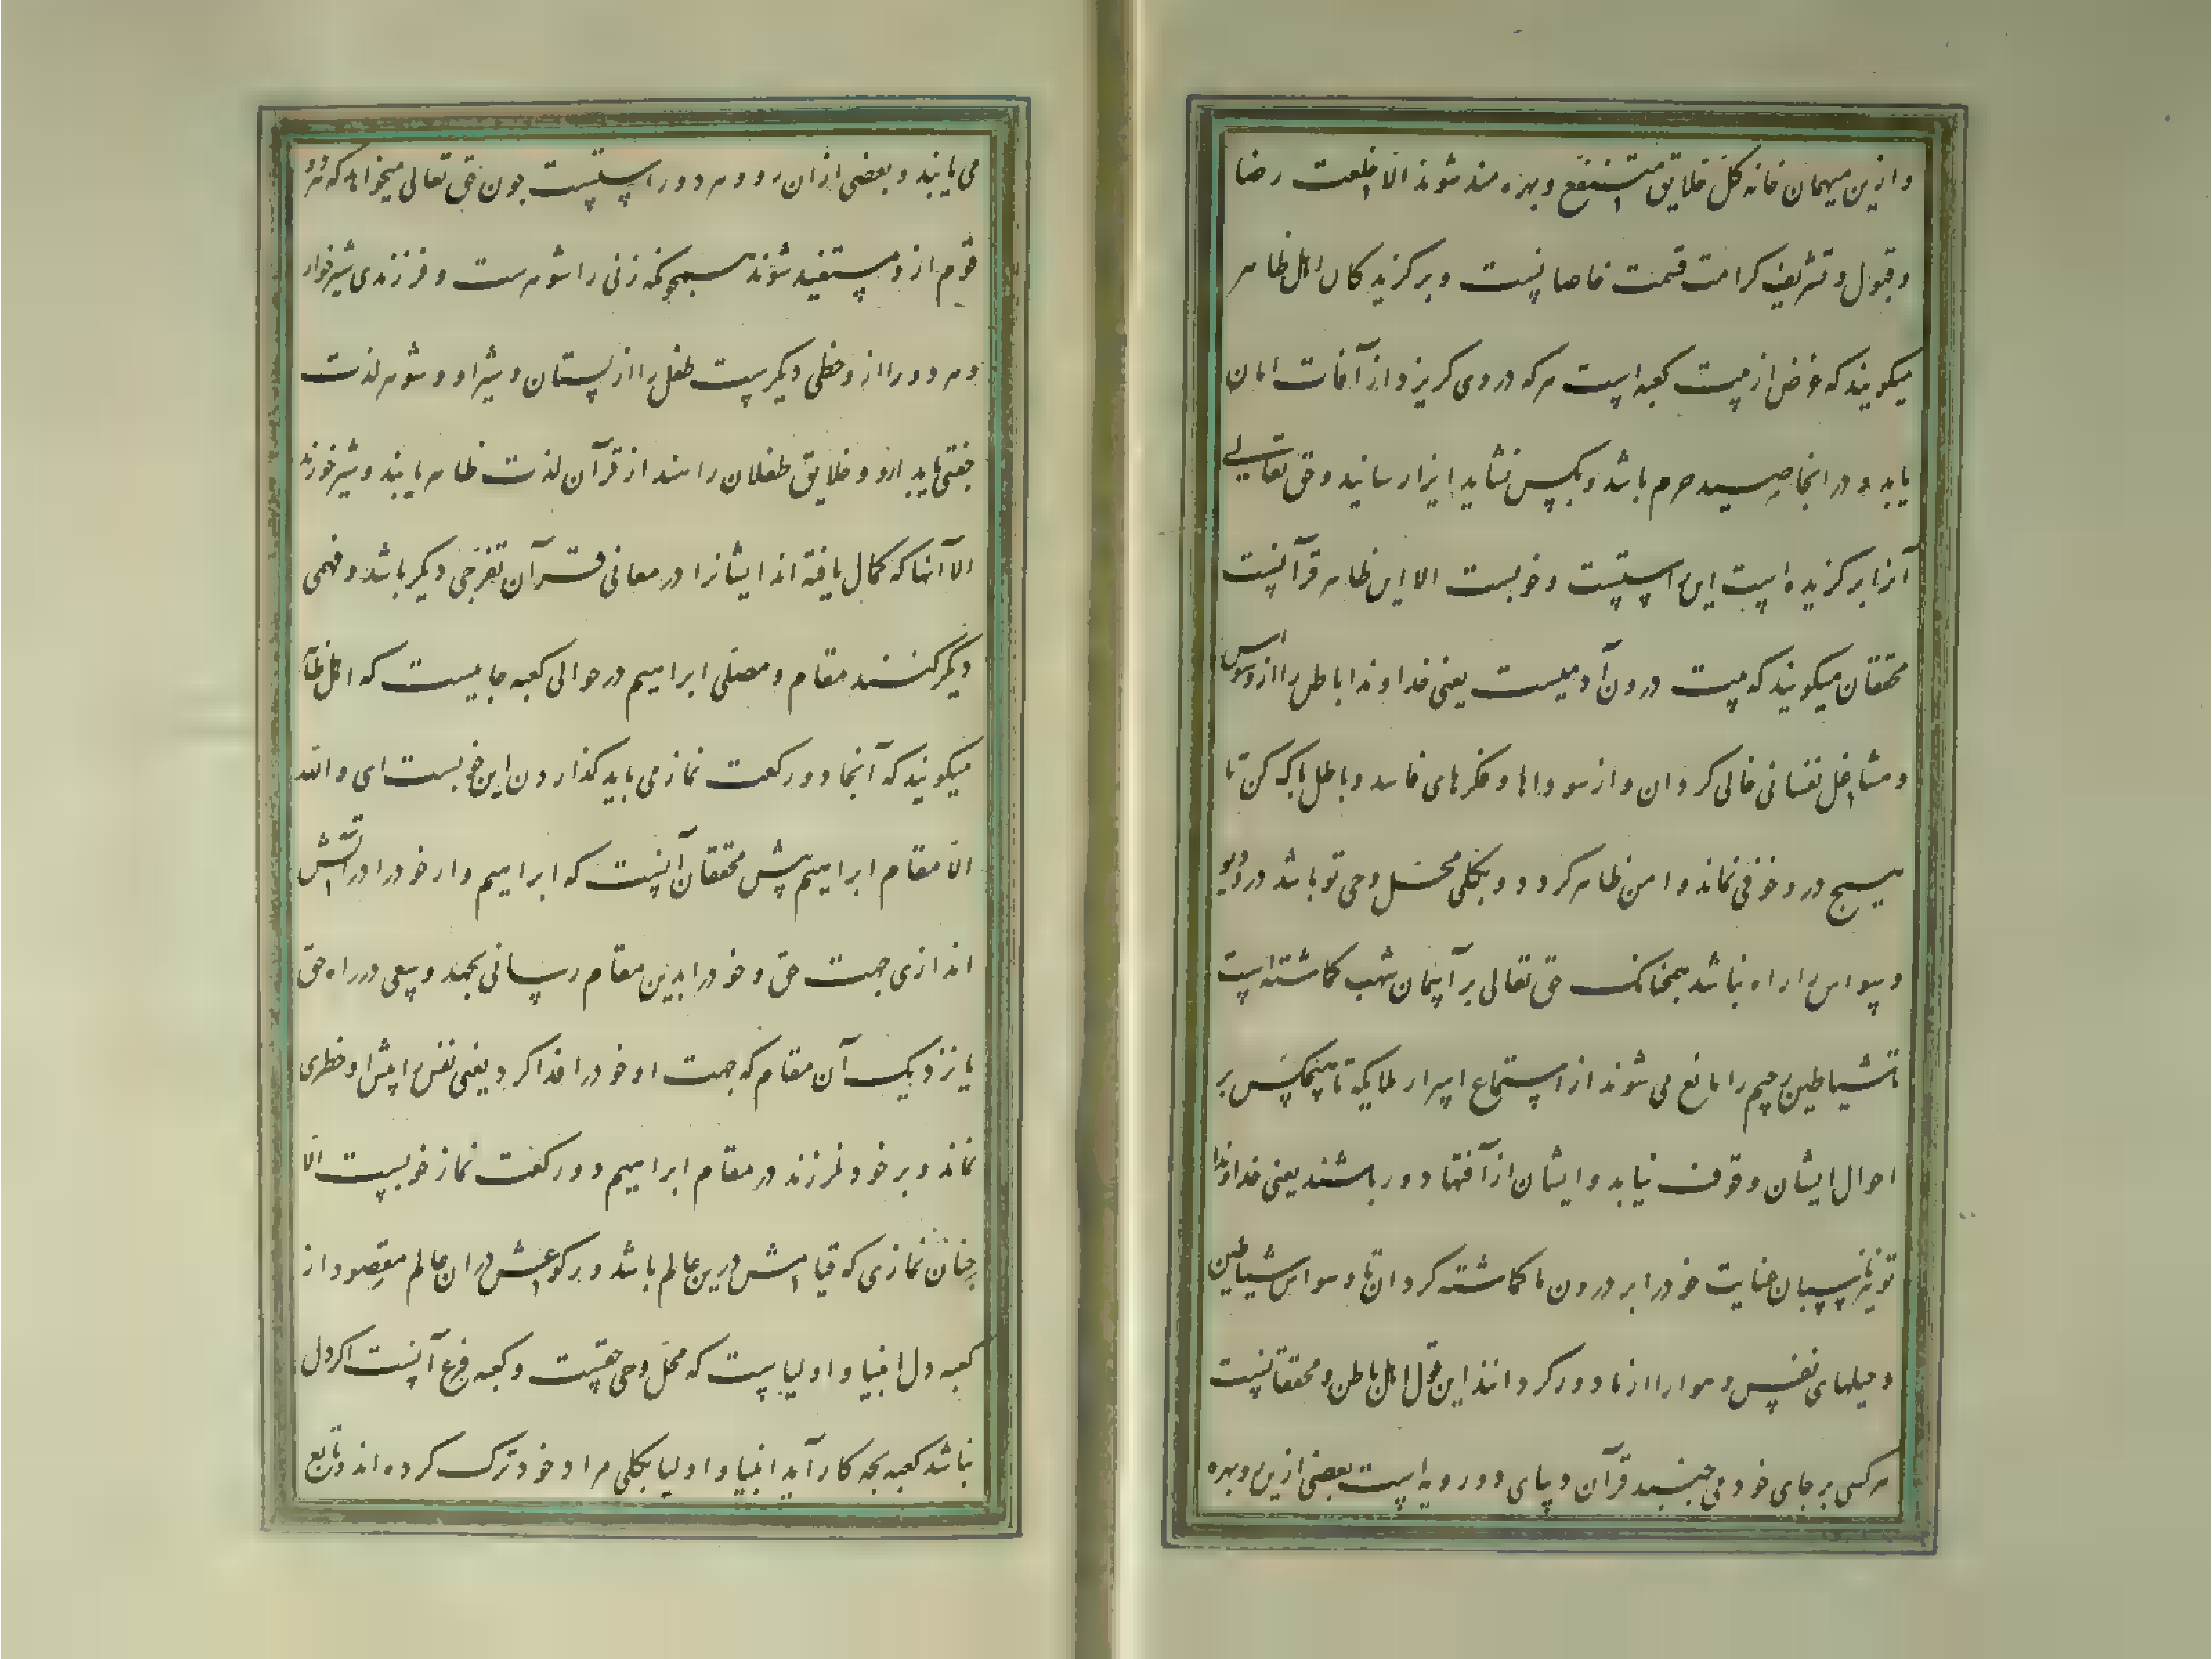 وازین میهمان خانه کل خلایق مستنفع و بهره مند شوند الا خلعت رضا
و قبول و تشریف کرامت قسمت خاصانست و برگزیدگان اهل ظاهر
میکویند که غرض از بیت کعبه است هر که در وی کریزد از آفات امان
یابد و در انجا صید حرم باشد و بکس نشاید ایزا رسانید و حق تعالی
آنرا برکزیده است این راستست و خوبست الا این ظاهر قرآنست
محققان میکویند که بیت درون آدمیست یعنی خداوندا باطن را از وسواس
و مشاغل نفسانی خالی کردان و از سوداها و فکرهای فاسد و باطل پاک کن تا
هیچ درو خوفی نماند و امن ظاهر کردد و بکلی محل وحی تو باشد درو دیو
و وسواس را راه نباشد همچنانک حق تعالی بر آسمان شهب کاشته است
تا شیاطین رجیم را مانع می شوند از استماع اسرار ملایکه تا هیچکس بر
احوال ایشان وقوف نیابد و ایشان از آفتها دور باشند یعنی خداوندا
تو نیز پاسبان عنایت خود را بر درون ما کماشته کردان تا وسواس شیاطین
و حیلهای نفس و هوا را از ما دور کردانند این قول اهل باطن و محققانست
هر کسی بر جای خود می جنبد قرآن دیبای دو رویه است بعضی ازین رو بهره
می یابند و بعضی ازان رو و هر دو راستست چون حق تعالی میخواهد که هر دو
قوم ازو مستفید شوند همچونکه زنی را شوهرست و فرزندی شیرخوار
و هر دو را ازو حظی دیکرست طفل را از پستان و شیر او و شوهر لذت
جفتی یابد ازو و خلایق طفلان راهند از قرآن لذت ظاهر یابند و شیر خورند
الا آنها که کمال یافته اند ایشانرا در معانی قرآن تفرجی دیکر باشد و فهمی
دیکر کنند مقام و مصلی ابراهیم در حوالی کعبه جاییست که اهل ظاهر
میکویند که آنجا دو رکعت نماز می باید کذاردن این خوبست ای والله
الا مقام ابراهیم پیش محققان آنست که ابراهیم وار خود را در آتش
اندازی جهت حق و خود را بدین مقام رسانی بجهد و سعی در راه حق
یا نزدیک آن مقام که جهت او خود را فدا کرد یعنی نفس را پیش او خطری
نماند و بر خود نلرزند در مقام ابراهیم دو رکعت نماز خوبست الا
چنان نمازی که قیامش درین عالم باشد و رکوعش دران عالم مقصود از
کعبه دل انبیا و اولیاست که محل وحی حقست و کعبه فرع آنست اکر دل
نباشد کعبه بچه کار آید انبیا و اولیا بکلی مراد خود ترک کرده اند و تابع